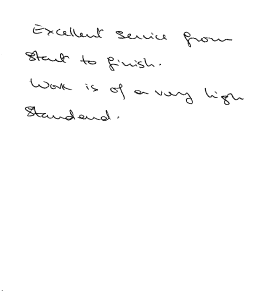 Excellent service from
start to finish.
Work is of a very high
Standard.